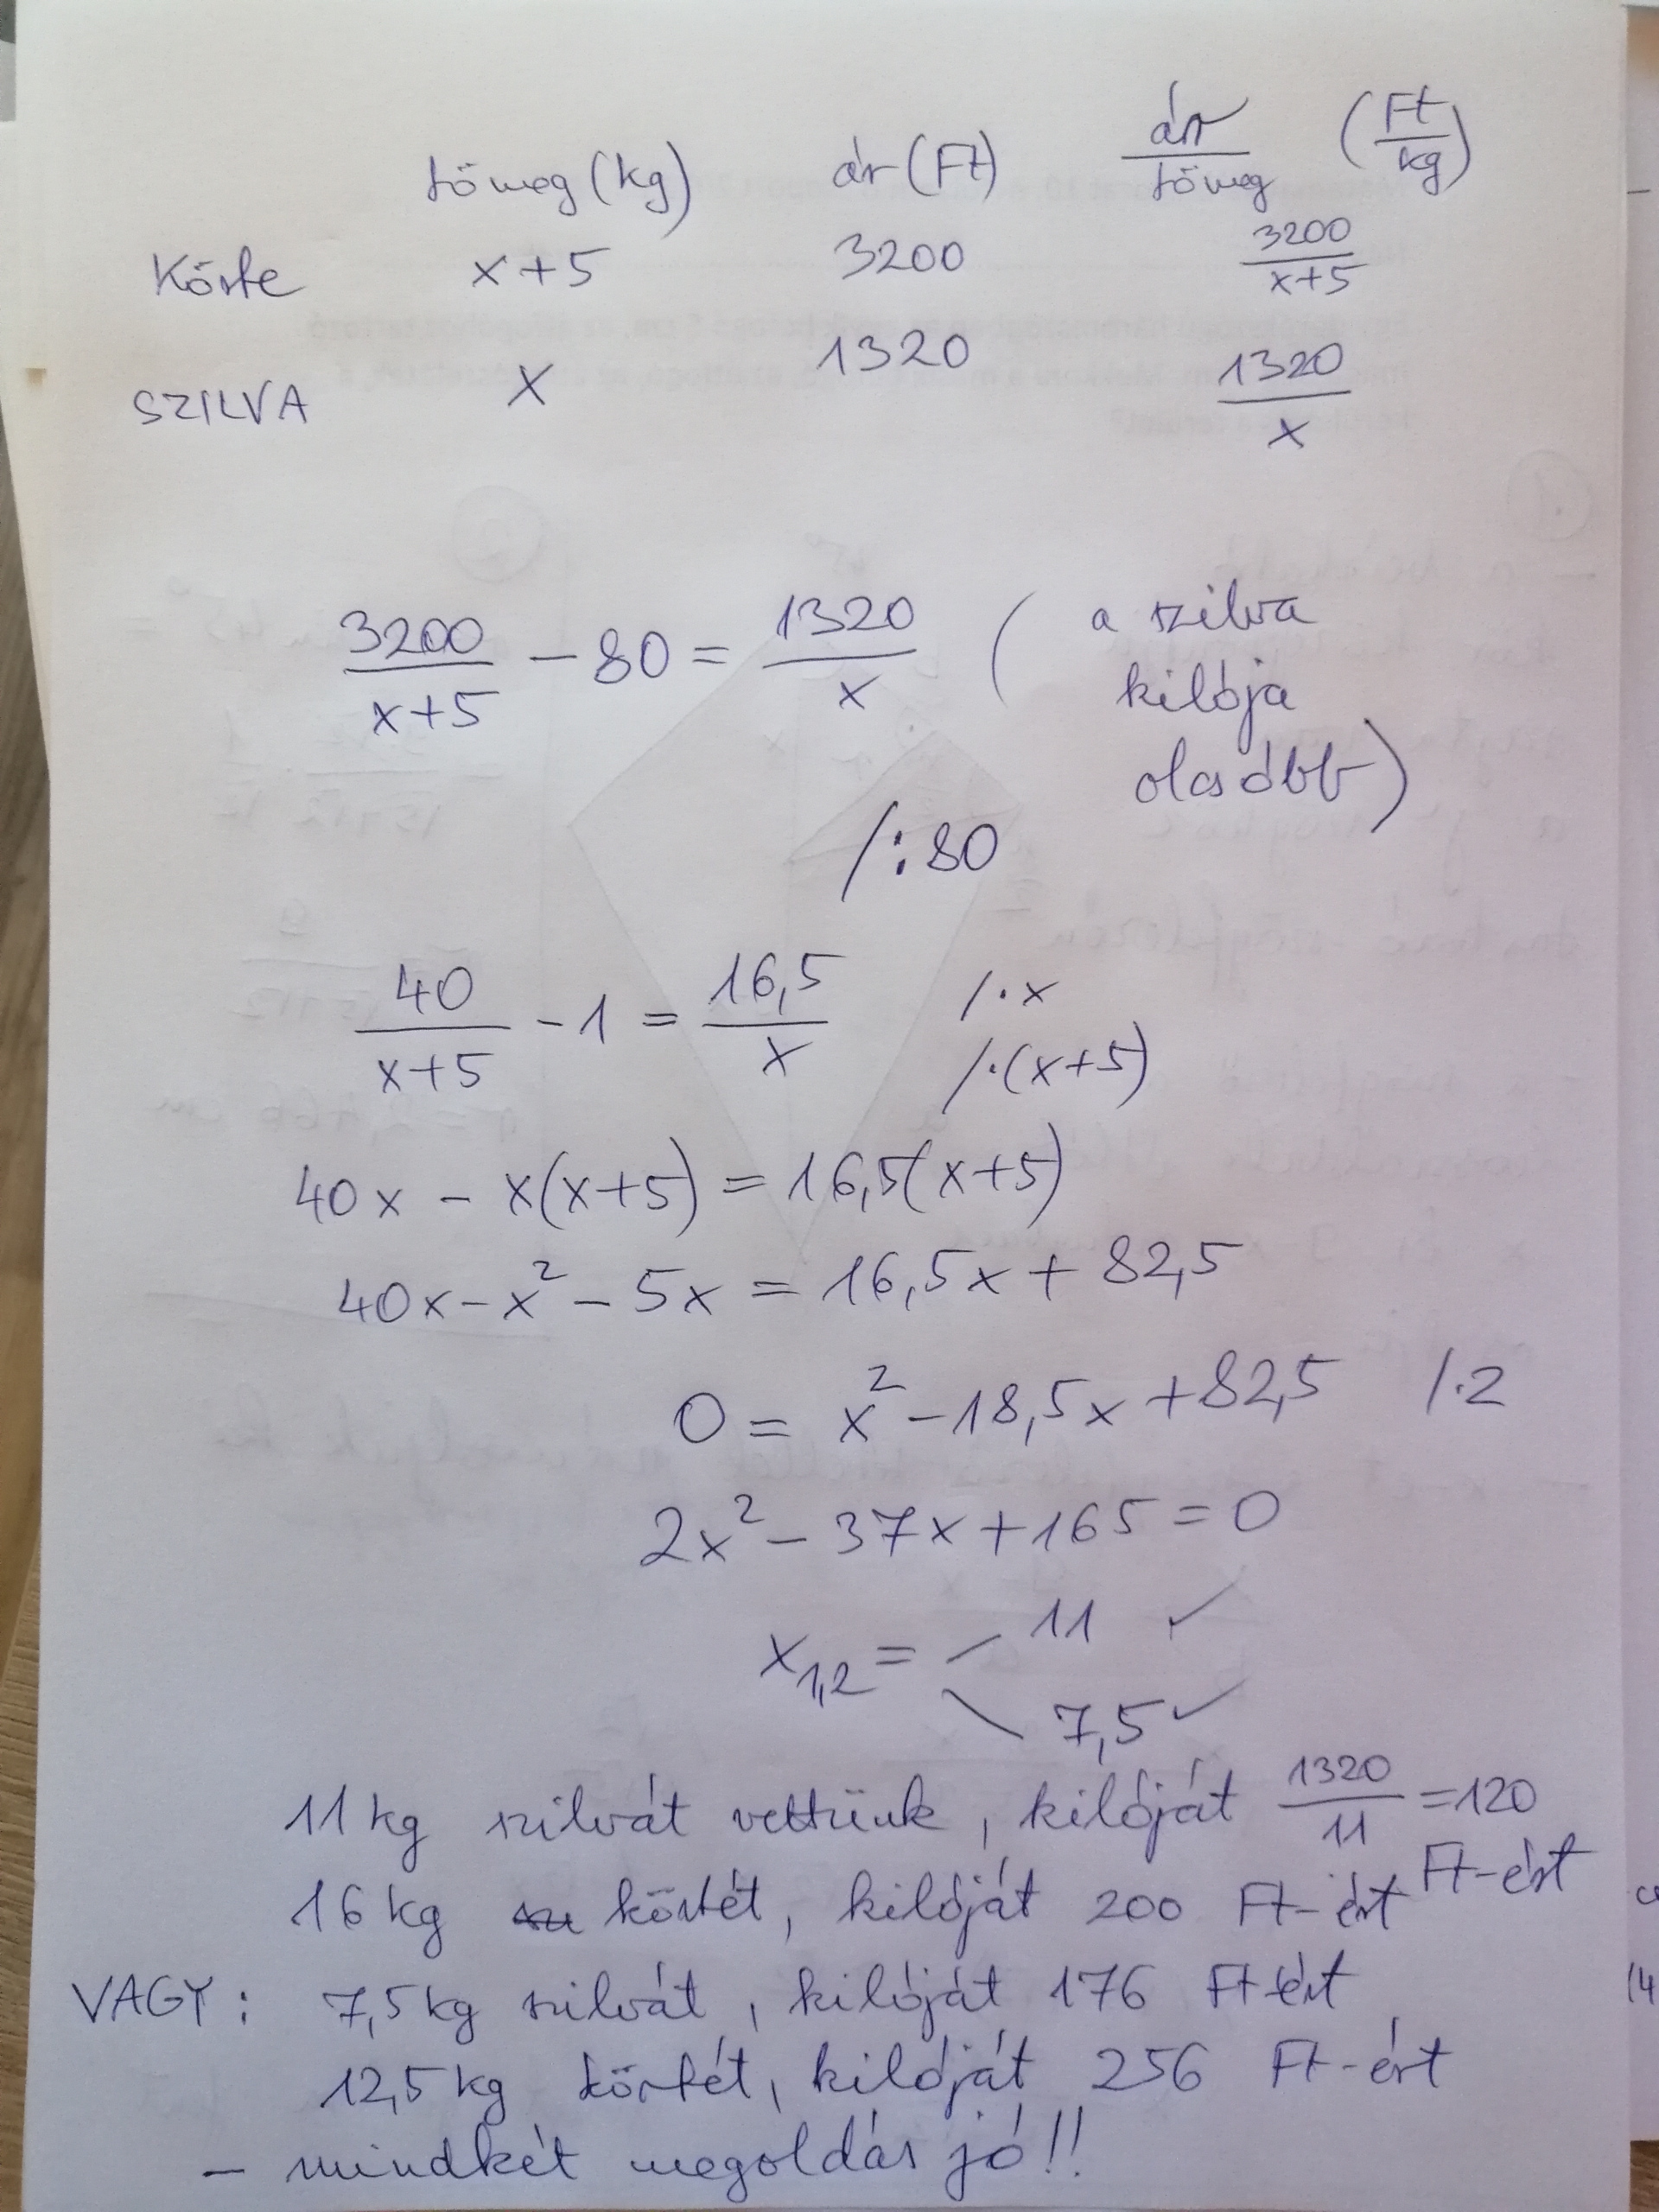 tömeg (kg) ár (Ft) ár/tömeg (Ft/kg)
Körte x+5 3200 3200/(x+5)
SZILVA x 1320 1320/x
3200/(x+5) - 80 = 1320/x (a szilva
kilója
olcsóbb)
/:80
40/(x+5) - 1 = 16,5/x /·x
/·(x+5)
40x - x(x+5) = 16,5(x+5)
40x - x² - 5x = 16,5x + 82,5
0 = x² - 18,5x + 82,5 /·2
2x² - 37x + 165 = 0
x1,2 = 11 ✓
7,5 ✓
11 kg szilvát vettünk, kilóját 1320/11 = 120
Ft-ért
16 kg körtét, kilóját 200 Ft-ért
VAGY: 7,5 kg szilvát, kilóját 176 Ft-ért
12,5 kg körtét, kilóját 256 Ft-ért
- mindkét megoldás jó!!